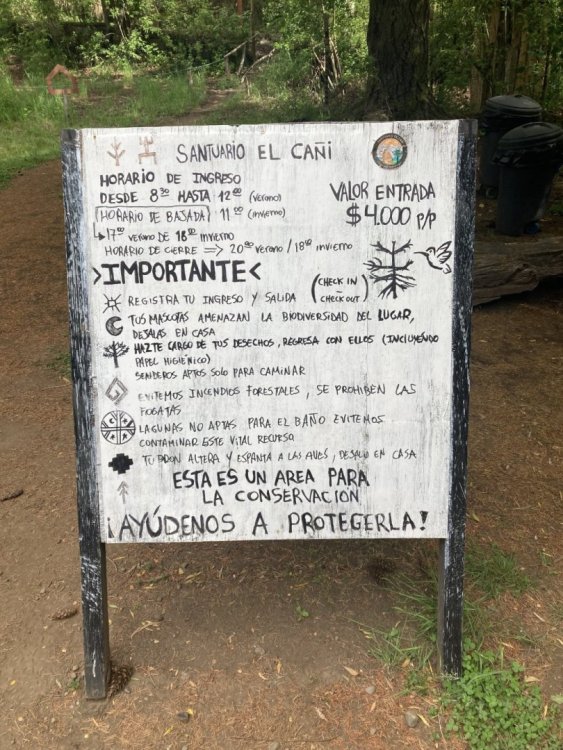 SANTUARIO EL CAÑI
HORARIO DE INGRESO
DESDE 8 30 HASTA 12 00 (verano)
(HORARIO DE BAJADA) 11 00 (invierno)
↳ 17 00 verano DE 18 00 invierno
HORARIO DE CIERRE => 20 00 verano / 18 00 invierno
VALOR ENTRADA
$4.000 P/P
>IMPORTANTE<
REGISTRA TU INGRESO Y SALIDA (CHECK IN ~ CHECK OUT)
TUS MASCOTAS AMENAZAN LA BIODIVERSIDAD DEL LUGAR,
DEJALAS EN CASA
HAZTE CARGO DE TUS DESECHOS, REGRESA CON ELLOS (INCLUYENDO
PAPEL HIGIÉNICO)
SENDEROS APTOS SOLO PARA CAMINAR
EVITEMOS INCENDIOS FORESTALES, SE PROHIBEN LAS
FOGATAS
LAGUNAS NO APTAS PARA EL BAÑO EVITEMOS
CONTAMINAR ESTE VITAL RECURSO
TU DRON ALTERA Y ESPANTA A LAS AVES, DEJALO EN CASA
ESTA ES UN AREA PARA
LA CONSERVACIÓN
¡AYÚDENOS A PROTEGERLA!